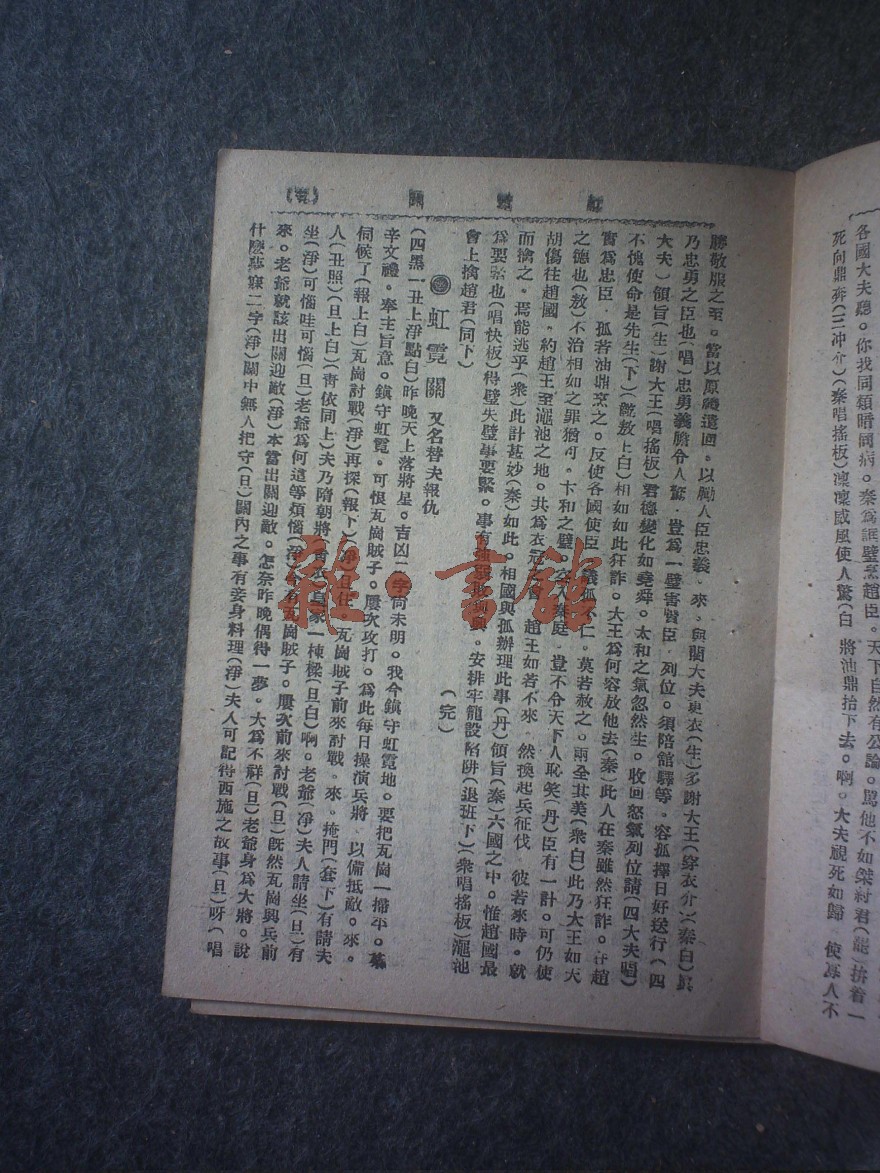 各國大夫聽。你我同類暗同病。秦為誆璧烹趙臣。天下自然有公論。罵他不如桀紂君(龍)拚着一
死向鼎奔(三冲介)(秦唱搖板)凜凜威風使人驚(白 將油鼎抬下去。啊。大夫視死如歸 使寡人不
虹霓關
勝敬服之至。當以原璧送回。以勵人臣忠義。來。與藺大夫更衣(生)多謝大王(穿衣介)(秦白)真
乃忠勇之臣也(唱)忠勇義膽令人驚。豈為一璧害賢臣。列位。須陪館驛等。容孤擇日好送行(四
大夫)領旨(生)謝大王(唱搖板)君德變化如堯舜。太和之氣忽然生。收回怒氣列位請(四大夫唱)
不愧使命是先生(下)(繳敖上白)相如如此狂詐。大王為何容放他去(秦)此人在秦雖然狂詐。在趙
實為忠臣。孤若油鼎烹之。反使各國使臣 議孤不仁。莫若赦之。兩全其美(衆白)此乃大王如天
之德也(敖)不治相如之罪猶可。卞和之璧。 秦庭。豈不令天下人恥笑(丹)臣有一計。可仍使
胡傷往趙國。約趙王至澠池之地。共為衣冠 會 趙王如若不來。然換起兵征伐。彼若來時。就
而擒之。焉能逃乎(衆)此計甚妙(秦)如此。相國與孤辦理此事(丹)領旨(秦)六國之中。惟趙國最
為要緊也(唱快板)得璧失璧事要緊。事有強弱 與。安排牢籠設陷阱(退班下)(衆唱搖板)澠池
會上擒趙君(同下) (完)
虹霓關 又名替夫報仇
(四黑一丑上淨點白)昨晚天上落將星。吉凶二字尚未明。我今鎮守虹霓地。要把瓦崗一掃平。某
辛文禮。奉主旨意。鎮守虹霓。可恨瓦崗賊子。屢次攻打。為此每日操演兵將 以備抵敵。來。
伺候了(報上白)瓦崗討戰(淨)再探(報下)(淨)且住。瓦崗賊子前來討戰。來。掩門(套下)有請夫
人(丑照)(旦上白)(靑依同上)夫乃隋朝將 皇家一棟樑(旦白)啊。老爺(淨)夫人請坐(旦)有
坐(淨)可惱哇可惱(旦)老爺為何這等煩惱(淨)今有瓦崗賊子。屢次前來討戰(旦)既然瓦崗興兵前
來。老爺就該出關迎敵(淨)本當出關迎敵。怎奈昨晚偶得一夢。大為不祥(旦)老爺身為大將。說
什麽夢寐二字(淨)關中無人把守(旦)關內之事有妾身料理(淨)夫人可記得西施之故事(旦)呀(唱
雜·書館